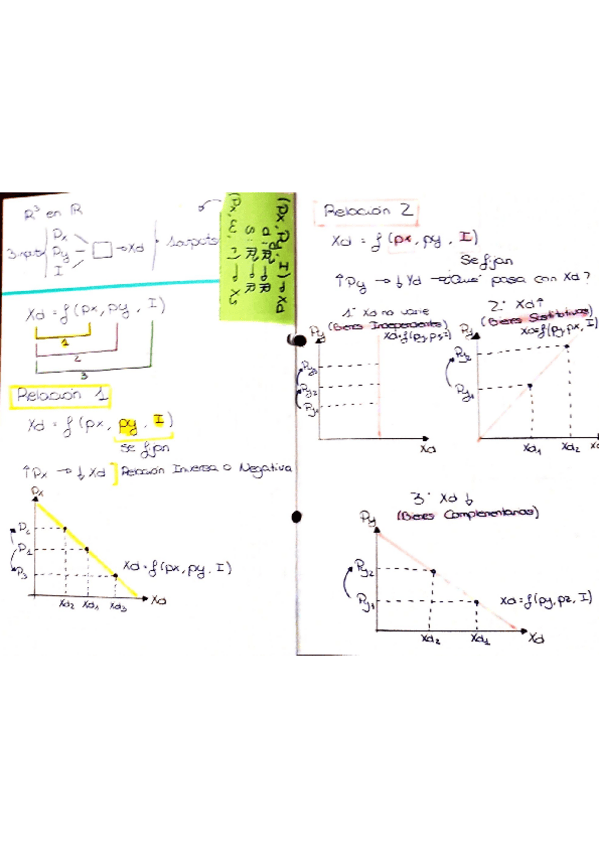 R³ en R
3 inputs
Px
Py
I
→ Xd
1 output
(Px, Py, I) → Xd
d: R³ → R
S: R³ → R
(Px, w, r) → Xs
Xd = f (px, py, I)
1
2
3
Relación 1
Xd = f (px, py, I)
se fijan
↑Px → ↓ Xd] Relación Inversa o Negativa
Px
P2
P1
P3
Xd = f (px, py, I)
Xd2 Xd1 Xd3
Xd
Relación 2
Xd = f (px, py, I)
Se fijan
↑Py → ↓ Yd → ¿Qué pasa con Xd?
1º Xd no varíe
(Bienes Independientes)
Py
Py3
Py2
Py1
Xd
2º Xd↑
(Bienes Sustitutivos)
Py
Xd=f(py, px, I)
Py2
Py1
Xd1 Xd2 Xd
3º Xd ↓
(Bienes Complementarios)
Py
Py2
Py1
Xd2 Xd1
Xd